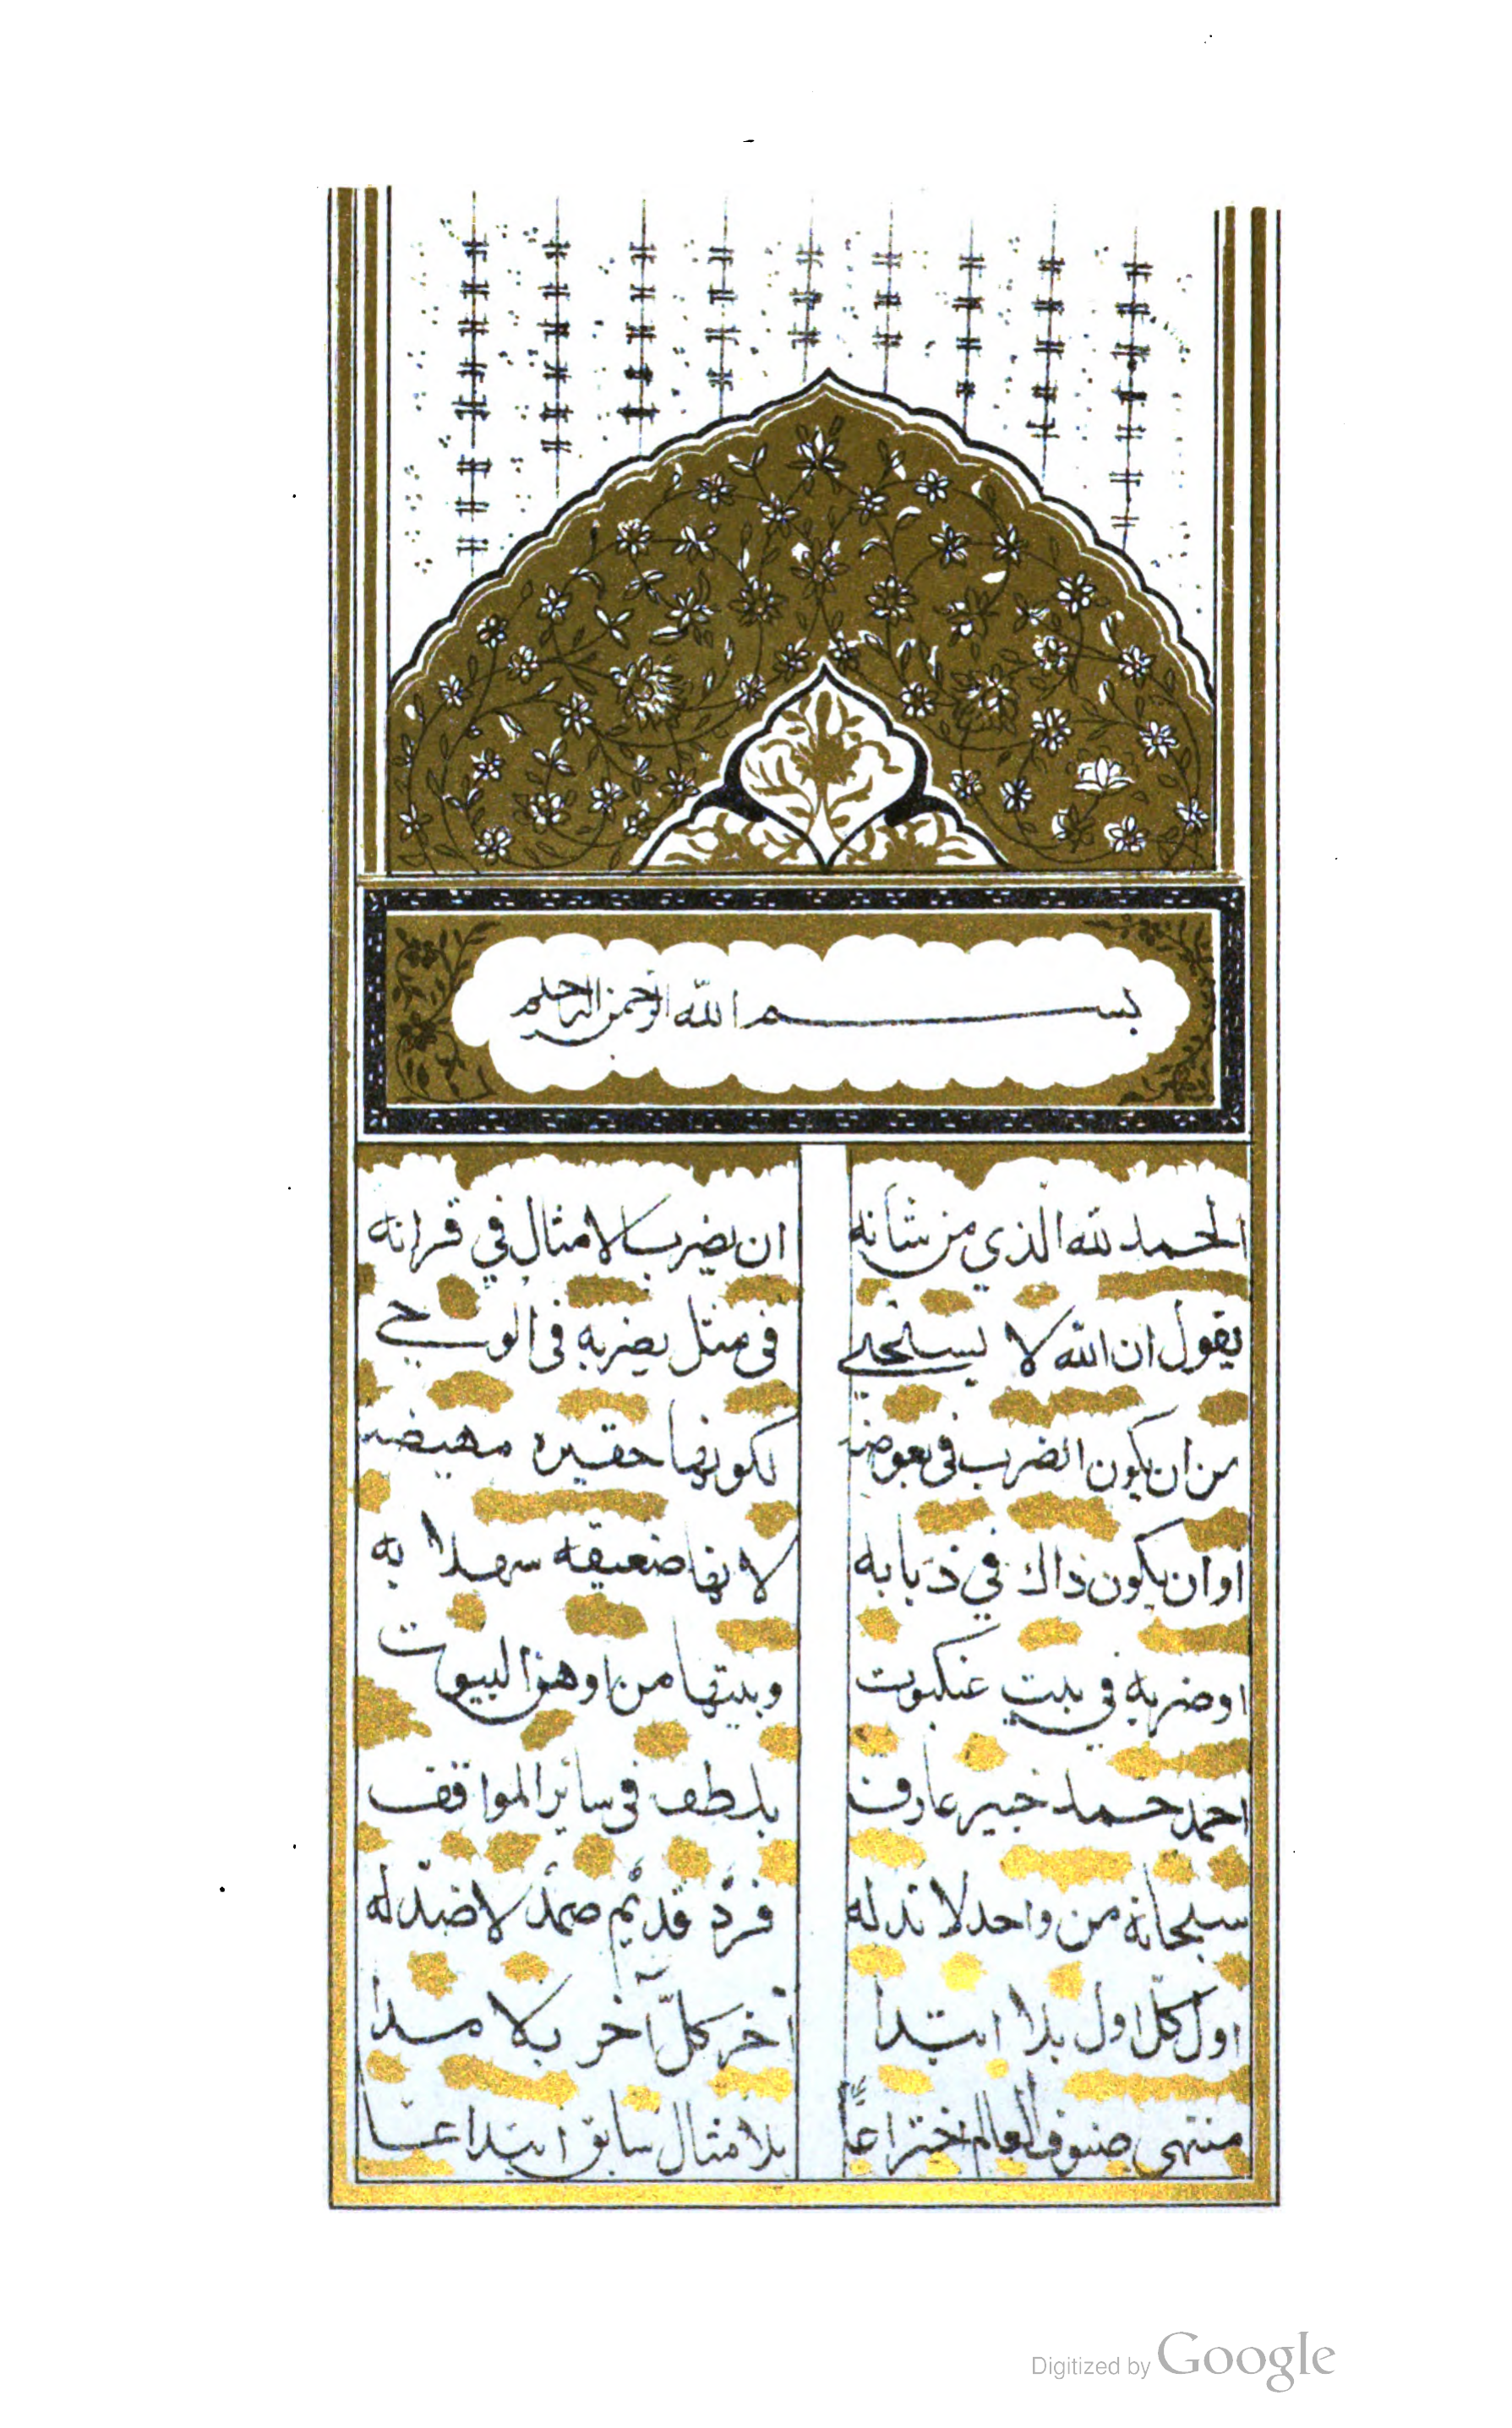 بسم الله الرحمن الرحيم
الحمد لله الذي من شانه ان يضرب الامثال في قرانه
يقول ان الله لا يستحي في مثل يضربه في الوحي
من ان يكون الضرب في بعوضة لكونها حقيرة مهيضة
او ان يكون ذاك في ذبابه لانها ضعيفه
او ضربه في بيت عنكبوت وبيتها من اوهن البيوت
احمد حمد خبير عارف بلطف في سائر المواقف
سبحانه من واحد لا ند له فرد قديم صمد لا ضد له
اول كل اول بلا ابتدا آخر كل آخر بلا مدا
صنوف العالم اختراعًا بلا مثال سابق ابتداعا
Digitized by Google